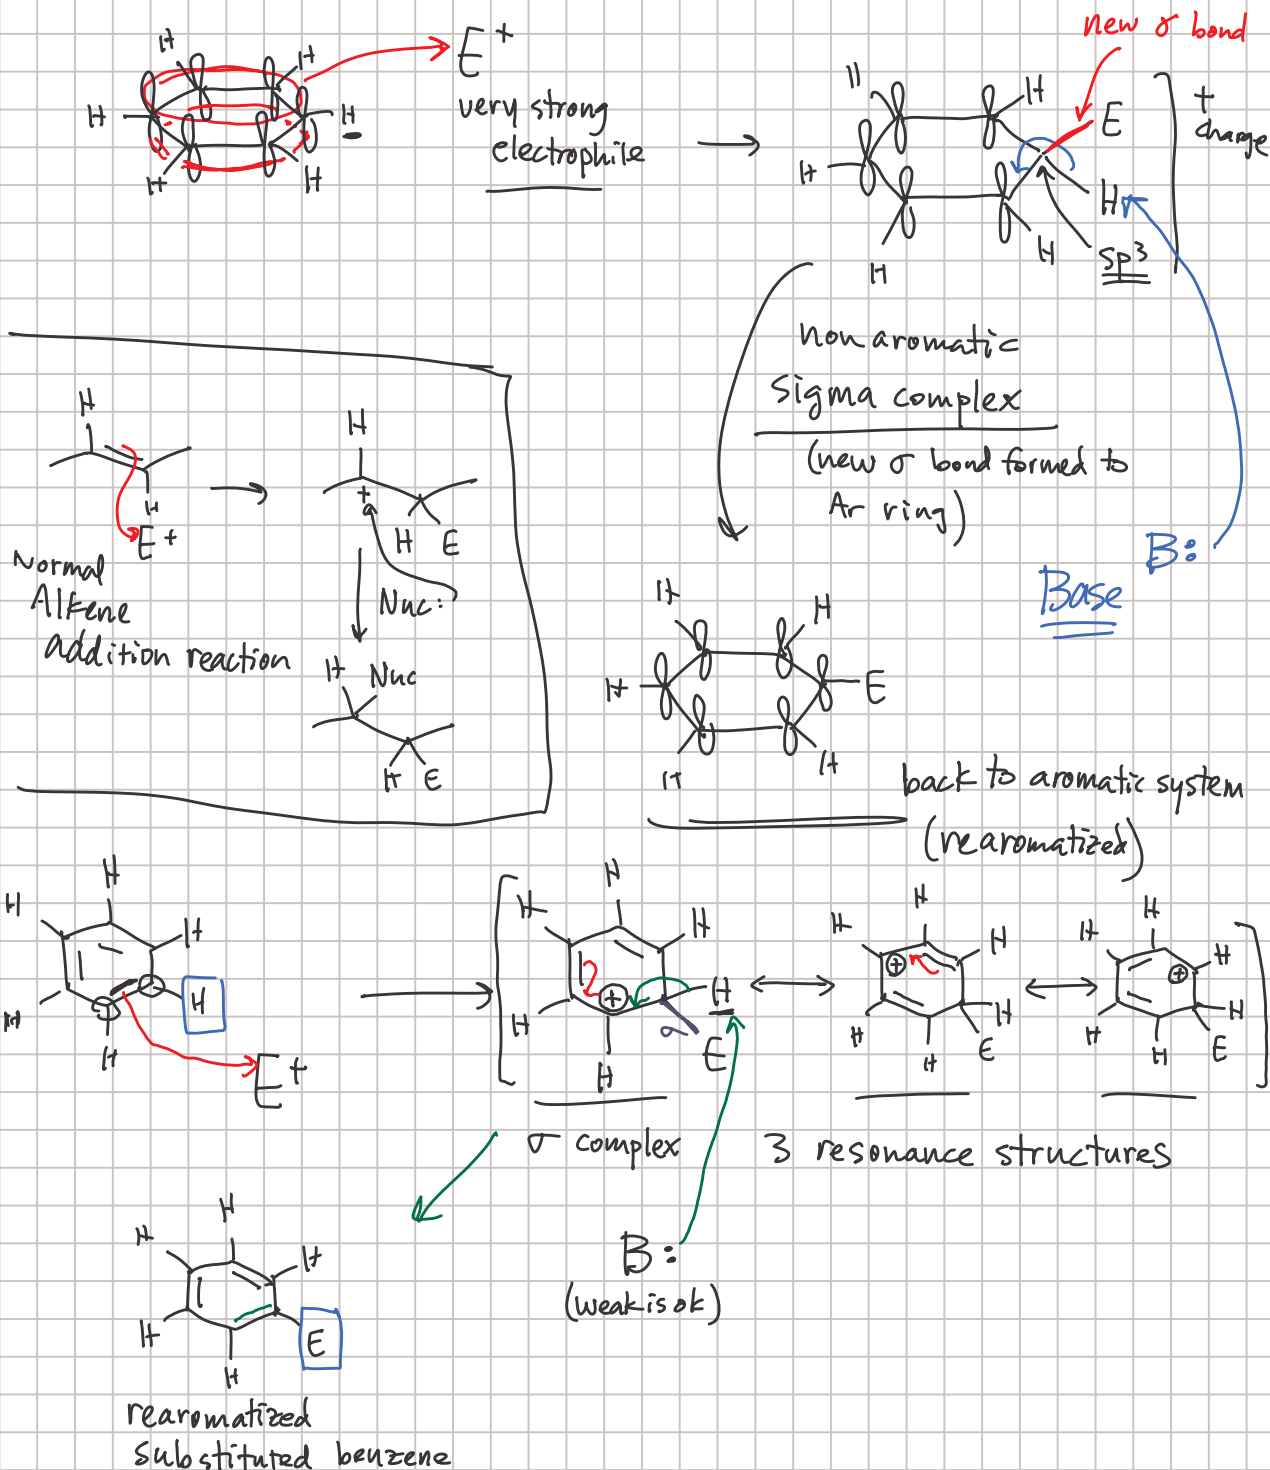 new σ bond
H
H
H
H
H
H
E+
very strong
electrophile
H
H
H
H
H
E
H
sp3
+
charge
Non aromatic
Sigma complex
(new σ bond formed to
Ar ring)
B:
Base
H
H
E+
Normal
Alkene
addition reaction
H
+
H E
Nuc:
H Nuc
H E
H
H
H
E
H
H
back to aromatic system
(rearomatized)
H
H
H
H
H
H
E+
H
H
H
H
H
H
+
σ
E
H
H
H
+
H
H
H
E
H
H
H
+
H
H
H
E
σ complex
3 resonance structures
B:
(weak is ok)
H
H
H
H
H
E
rearomatized
substituted benzene